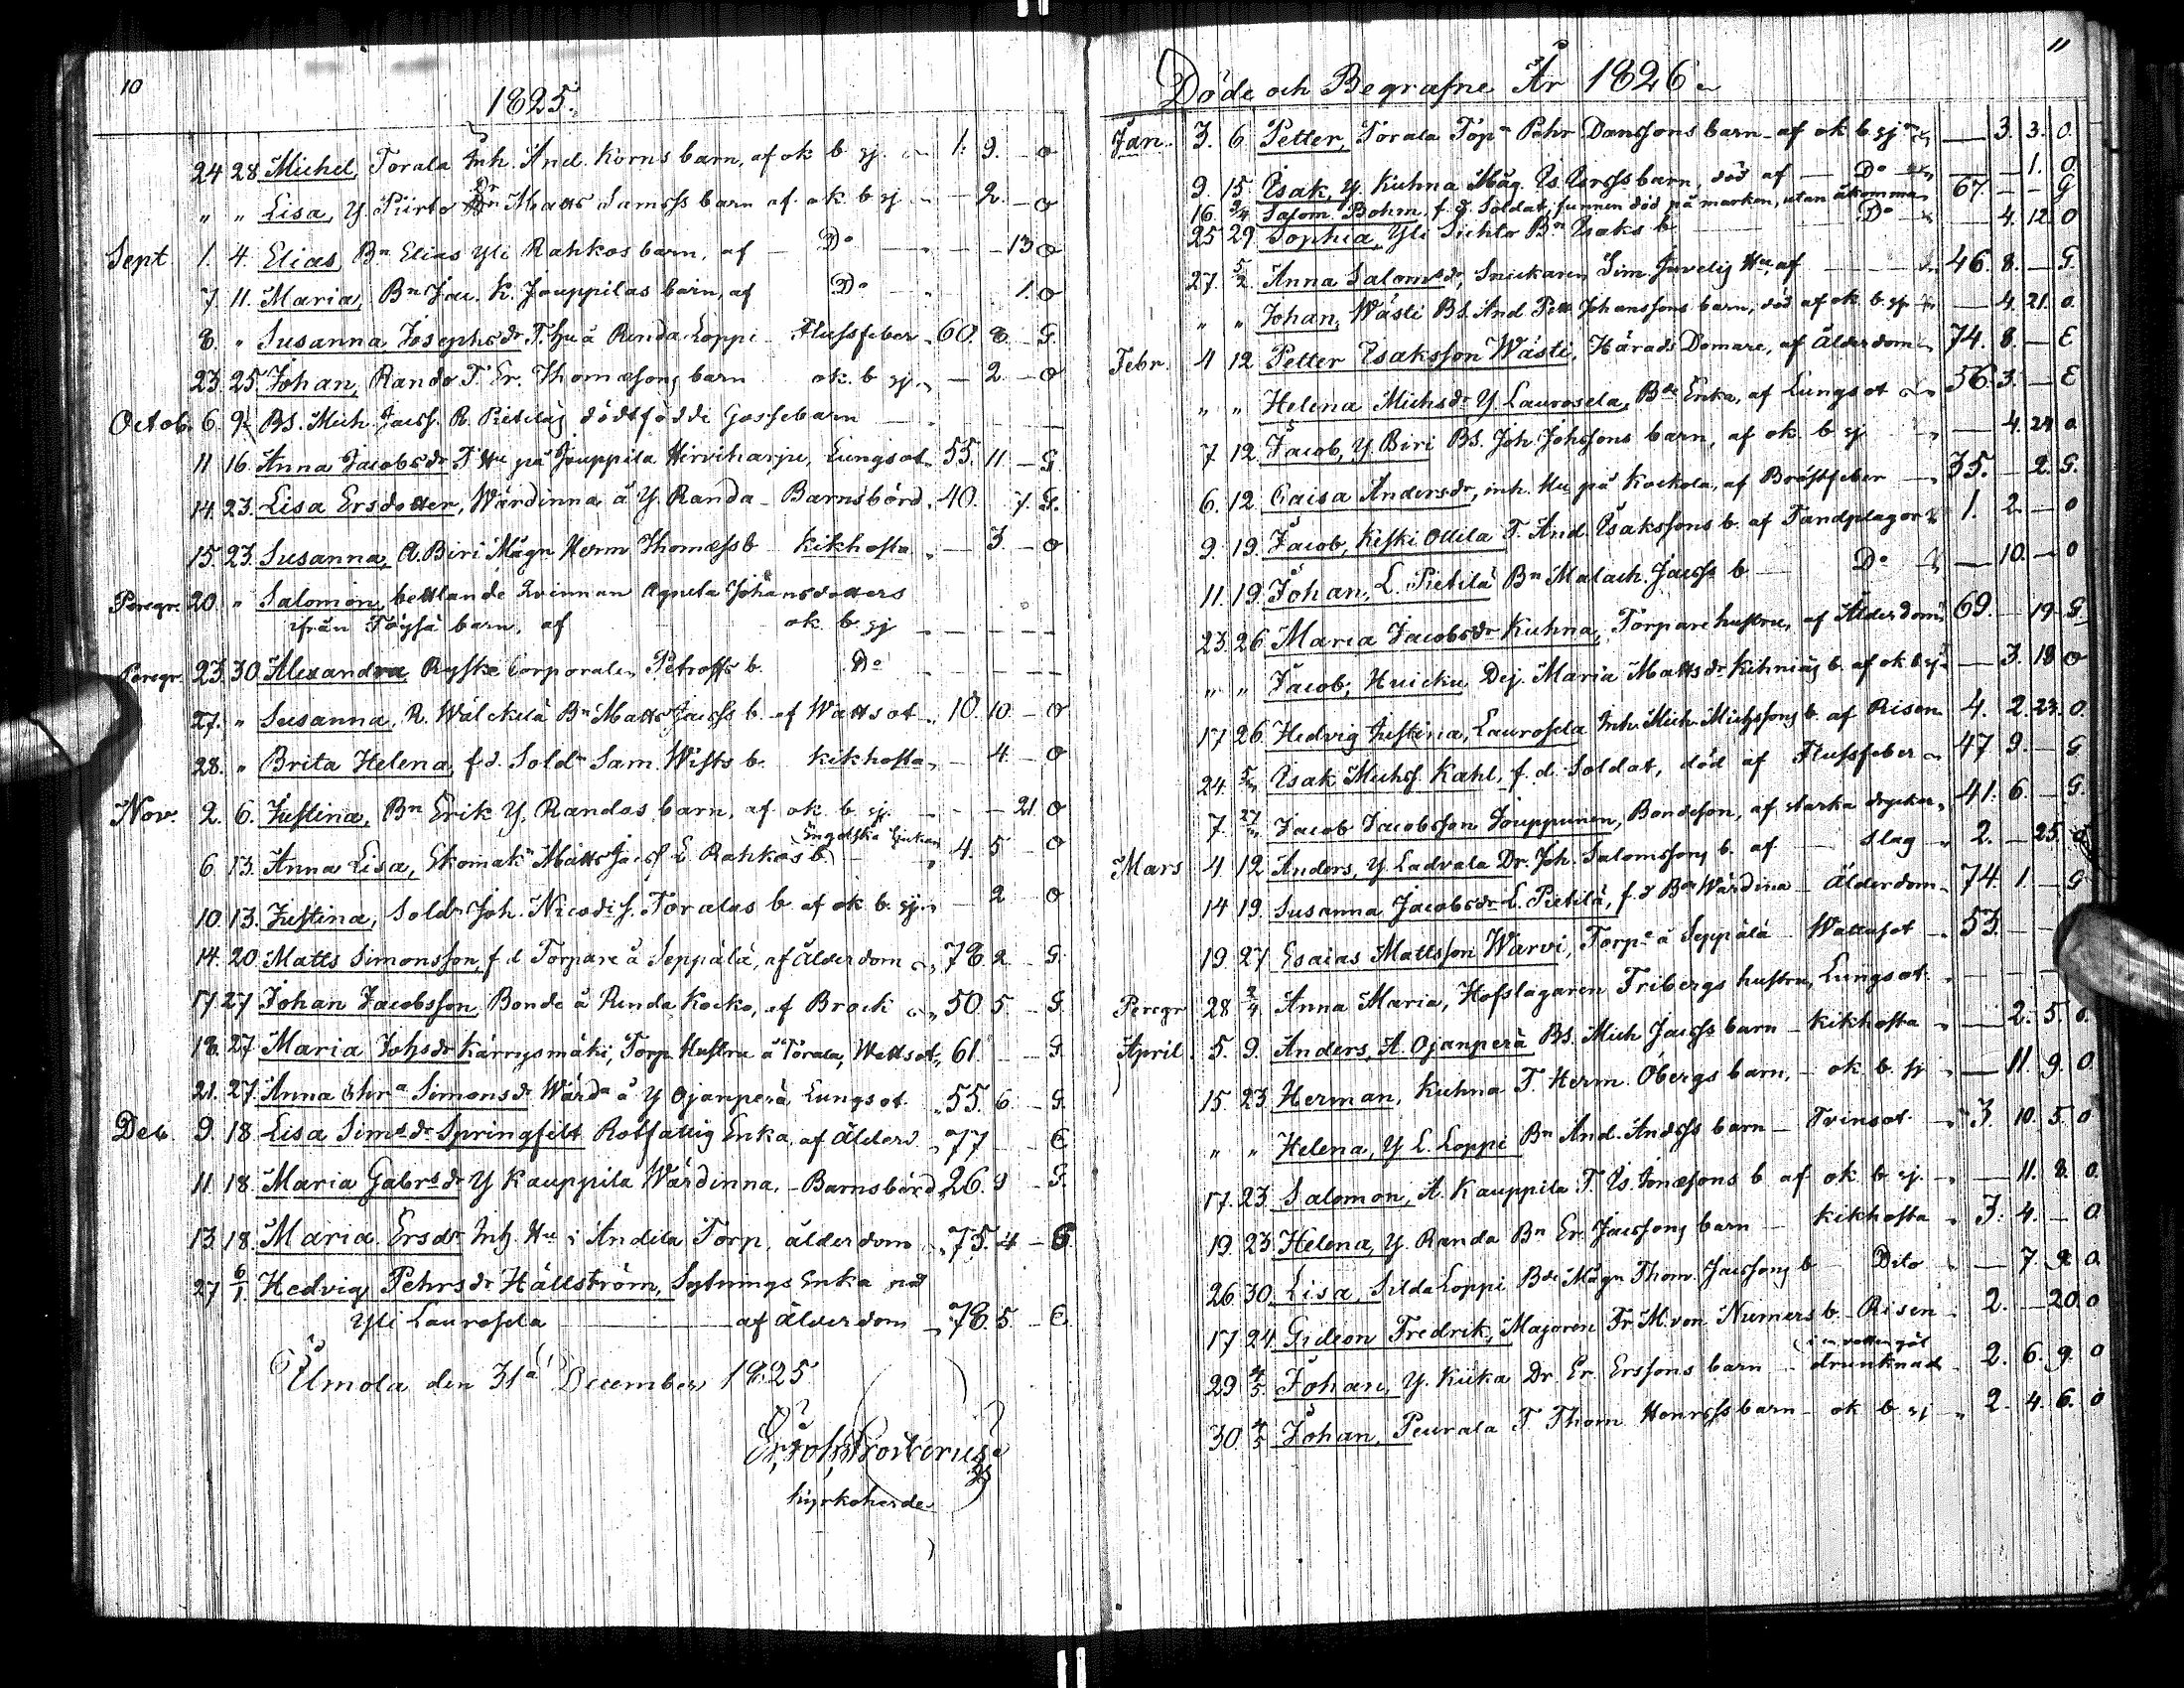 10
1825.
24 28 Michel, Torala Inh. And. Korns barn, af ok b sj. 1. 9. - o
" " Lisa, Y. Piirto Dr Matts Samsss barn af ok b sj - 2. - o
Sept. 1. 4. Elias, Bn Elias Yli Rahkos barn, af Do - - 13 o
7. 11. Maria, Bn Jac. K. Jouppilas barn, af Do 1. o
8. " Susanna Josephsdr T. Hu å Randa Loppi Flussfeber 60. 8. G.
23. 25. Johan, Rando T. Er. Thomæsons barn ok. b sj. - 2. - o
Octob. 6. 9. BS. Mich. Jacss. R. Pietiläs dödfödde Gossebarn
11 16. Anna Jacobsdr T Hu på Jouppila Hirviharju, Lungsot 55. 11 - G.
14. 23. Lisa Ersdotter, Wärdinna å Y. Randa - Barnsbörd. 40. 7. G.
15. 23. Susanna, A. Biri Mågn Herm Thomæss b kikhosta - 3 - o
Peregr. 20. " Salomon, bettlande Qvinnan Agneta Johansdotters
ifrån Töysä barn, af ok. b sj
Peregr. 23. 30. Alexandra Ryske Corporalen Petroffs b. Do
27. " Susanna, R. Wälckilä Bn Matts Jacss b. af Wattsot 10. 10. - o
28. " Brita Helena, f.d. Soldn Sam. Wists b. kikhosta - 4. - o
Nov. 2. 6. Justina, Bn Erik Y. Randas barn, af ok b sj. - - 21 o
6. 13. Anna Lisa, Skomakn Matts Jacss E. Rahkos b. Engelska Sjukan 4. 5 - o
10. 13. Justina, Soldn Joh. Nicod. s. Toralas b. af ok b. sj. - 2 - o
14. 20. Matts Simonsson, f d Torpare å Seppälä, af Ålderdom 78. 2 G.
17. 27 Johan Jacobsson Bonde å Randa Kocko, af Brock 50. 5. - G.
18. 27 Maria Johsdr Kärrysmäki, Torp Hustru å Torala, Wattsot 61. G.
21. 27. Anna Chra Simonsdr Wärda å Y Ojanperä Lungsot. 55. 6. - G.
Dec. 9. 18. Lisa Simsdr Springfilt Rotfattig Enka, af Ålderd. 77 - E
11. 18. Maria Gabrsdr Y Kauppila Wärdinna. - Barnsbörd. 26. 9 - G.
13 18. Maria Ersdr Inh. Hu i Andila Torp, ålderdom 75. 4 - G.
27 6/1. Hedvig Pehrsdr Hällström, Sytnings Enka på
Yli Laurosela af ålderdom 78. 5. - E
Ilmola den 31a December 1825.
kyrkoherde
11
Döde och Begrafne År 1826
Jan. 3. 6. Petter, Torala Torpn Pehr Danssons barn - af ok b sj - 3. 3. o.
9. 15. Isak, Y. Kuhna Måg. Is. Isrss barn, död af Do - - 1. o.
16. 2/4 Salom. Bohm, f. d. Soldat, funnen död på marken, utan åkomma 67. - - G
25 29 Sophia, Yli Sichto Bn Isaks b Do - 4. 12. o
27. 5/2. Anna Salomsdr, Snickaren Sim. Juvelij Hu, af 46. 8. - G.
" " Johan, Wästi BS. And Pett. Johanssons barn, död af ok. b sj - 4. 21. o
Febr. 4 12 Petter Isaksson Wästi, Härads Domare, af Ålderdom 74. 8. - E
" " Helena Michsdr Y. Laurosela, Bde Enka, af Lungsot 56. 3. - E
7 12. Jacob, Y. Biri BS. Joh Johssons barn, af ok. b sj - 4. 24 o
6. 12. Caisa Andersdr, inh. Hu på Kockola, af Bröstfeber 35. - 2. G.
9. 19. Jacob, Kiski Ollila T. And. Isakssons b. af Tandplågor 1. 2 - o
11. 19. Johan, L. Pietilä Bn Malach. Jacss b Do - 10. - o
23. 26. Maria Jacobsdr Kuhna, Torpare hustru, af Ålderdom 69. - 19 G.
" " Jacob, Huicku Dej. Maria Mattsdr Kihniäs b. af ok b sj - 3. 18 o
17 26. Hedvig Justina, Laurosela Inh. Mich. Michssons b. af Risen 4. 2. 23. o
24. 5/" Isak Michss. Kahl, f. d. Soldat, död af Flussfeber 47 9. - G
7. 27/" Jacob Jacobsson Jouppunen, Bondeson, af starka drycker 41. 6. - G.
Mars 4 12 Anders, Y. Ladvala Dr. Joh. Salomssons b. af slag 2. - 25. o
14 19. Susanna Jacobsdr L. Pietilä, f. d Bde Wärdina - Ålderdom 74. 1. - G
19. 27 Esaias Mattsson Warvi, Torpe å Seppälä Wattusot 53. - -
Peregr 28 2/4. Anna Maria, Hofslagaren Fribergs hustru, Lungsot.
April. 5. 9. Anders, A. Ojanperä BS. Mich Jacss barn - kikhosta - 2. 5. o.
15. 23. Herman, Kuhna T. Herm. Öbergs barn, - ok. b. sj - 11. 9. o
" " Helena, Y L. Loppi Bn And. Andss barn - Tvinsot 3. 10. 5. o
17. 23. Salomon, A. Kauppila T. Is. Jonæsons b af ok. b sj. - 11. 8. o.
19. 23. Helena, Y. Randa Bn Er. Jacssons barn - kikhosta 3. 4. - o
26. 30. Lisa, Silda Loppi Bde Mågn Thom. Jacssons b Dito - 7. 2 o.
17 24. Gideon Fredrik, Majoren Fr. M. von Numers b. - Risen 2. - 20. o
29 4/5. Johan, Y. Kiika Dr. Er. Erssons barn - drunknad i en vattengöl 2. 6. 9. o
30. 4/5 Johan, Peurala T Thom Henrss barn - ok b sj 2. 4. 6. o